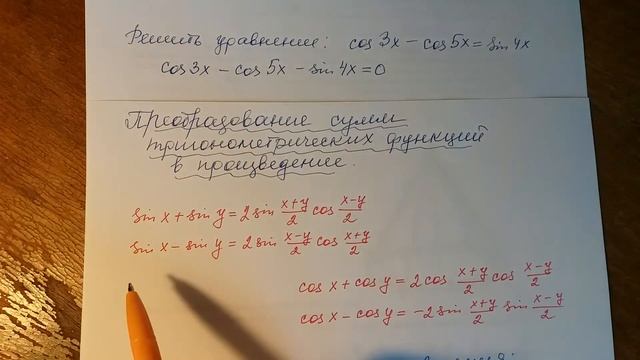 Решить уравнение: cos 3x − cos 5x = sin 4x
cos 3x − cos 5x − sin 4x = 0
Преобразование сумм
тригонометрических функций
в произведение.
sin x + sin y = 2 sin (x+y)/2 cos (x−y)/2
sin x − sin y = 2 sin (x−y)/2 cos (x+y)/2
cos x + cos y = 2 cos (x+y)/2 cos (x−y)/2
cos x − cos y = −2 sin (x+y)/2 sin (x−y)/2